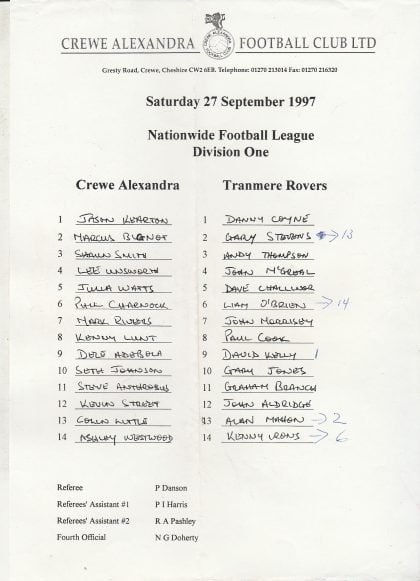 CREWE ALEXANDRA FOOTBALL CLUB LTD
Gresty Road, Crewe, Cheshire CW2 6EB. Telephone: 01270 213014 Fax: 01270 216320
Saturday 27 September 1997
Nationwide Football League
Division One
Crewe Alexandra Tranmere Rovers
1 JASON KEARTON 1 DANNY COYNE
2 MARCUS BIGNOT 2 GARY STEVENS → 13
3 SHAUN SMITH 3 ANDY THOMPSON
4 LEE UNSWORTH 4 JOHN McGREAL
5 JULIA WATTS 5 DAVE CHALLINOR
6 PHIL CHARNOCK 6 LIAM O'BRIEN → 14
7 MARK RIVERS 7 JOHN MORRISEY
8 KENNY LUNT 8 PAUL COOK
9 DELE ADEBOLA 9 DAVID KELLY 1
10 SETH JOHNSON 10 GARY JONES
11 STEVE ANTHROBUS 11 GRAHAM BRANCH
12 KEVIN STREET 12 JOHN ALDRIDGE
13 COLIN LITTLE 13 ALAN MAHON → 2
14 ASHLEY WESTWOOD 14 KENNY IRONS → 6
Referee P Danson
Referees' Assistant #1 P I Harris
Referees' Assistant #2 R A Pashley
Fourth Official N G Doherty